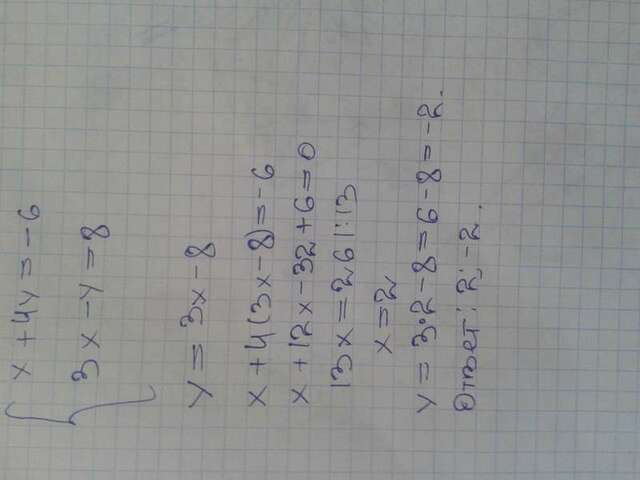 x + 4y = -6
3x - y = 8
y = 3x - 8
x + 4(3x - 8) = -6
x + 12x - 32 + 6 = 0
13x = 26 |:13
x = 2
y = 3·2 - 8 = 6 - 8 = -2.
Ответ: 2; -2.